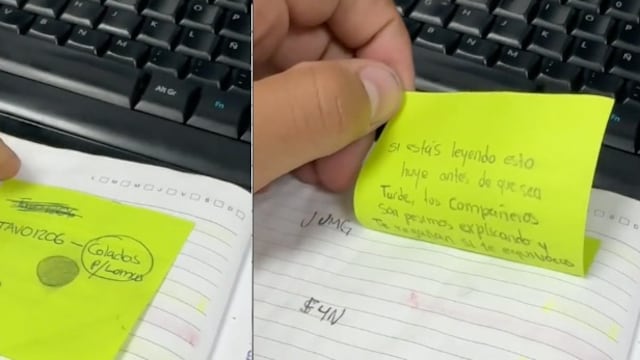 Alt Gr
Fn
TAVO1206 - Colados
P/Lomas
Si estás leyendo esto
huye antes de que sea
Tarde, los Compañeros
son pesimos explicando y
Te regañan si te equivocas
Fn